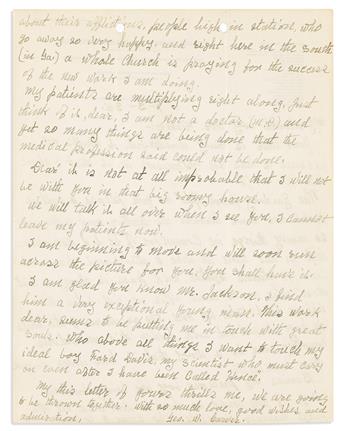 about their afflictions, people high in station, who
go away so very happy, and right here in the South
(in Ga) a whole Church is praying for the success
of the new work I am doing.
My patients are multiplying right along, Just
think of it, dear, I am not a doctor (M.D) and
yet so many things are being done that the
medical profession said could not be done.
Dear it is not at all improbable that I will not
be with you in that big roomy house.
We will talk it all over when I see you, I cannot
leave my patients now.
I am beginning to move and will soon run
across the picture for you. You shall have it.
I am glad you know Mr. Jackson, I find
him a very exceptional young man. This work
dear, seems to be putting me in touch with great
souls. Who above all things I want to touch my
ideal boy Ford Davis, my scientist who must carry
on even after I have been called "hence".
My this letter of yours thrills me, we are going
to be thrown together. With so much love, good wishes and
admiration, Geo. W. Carver.